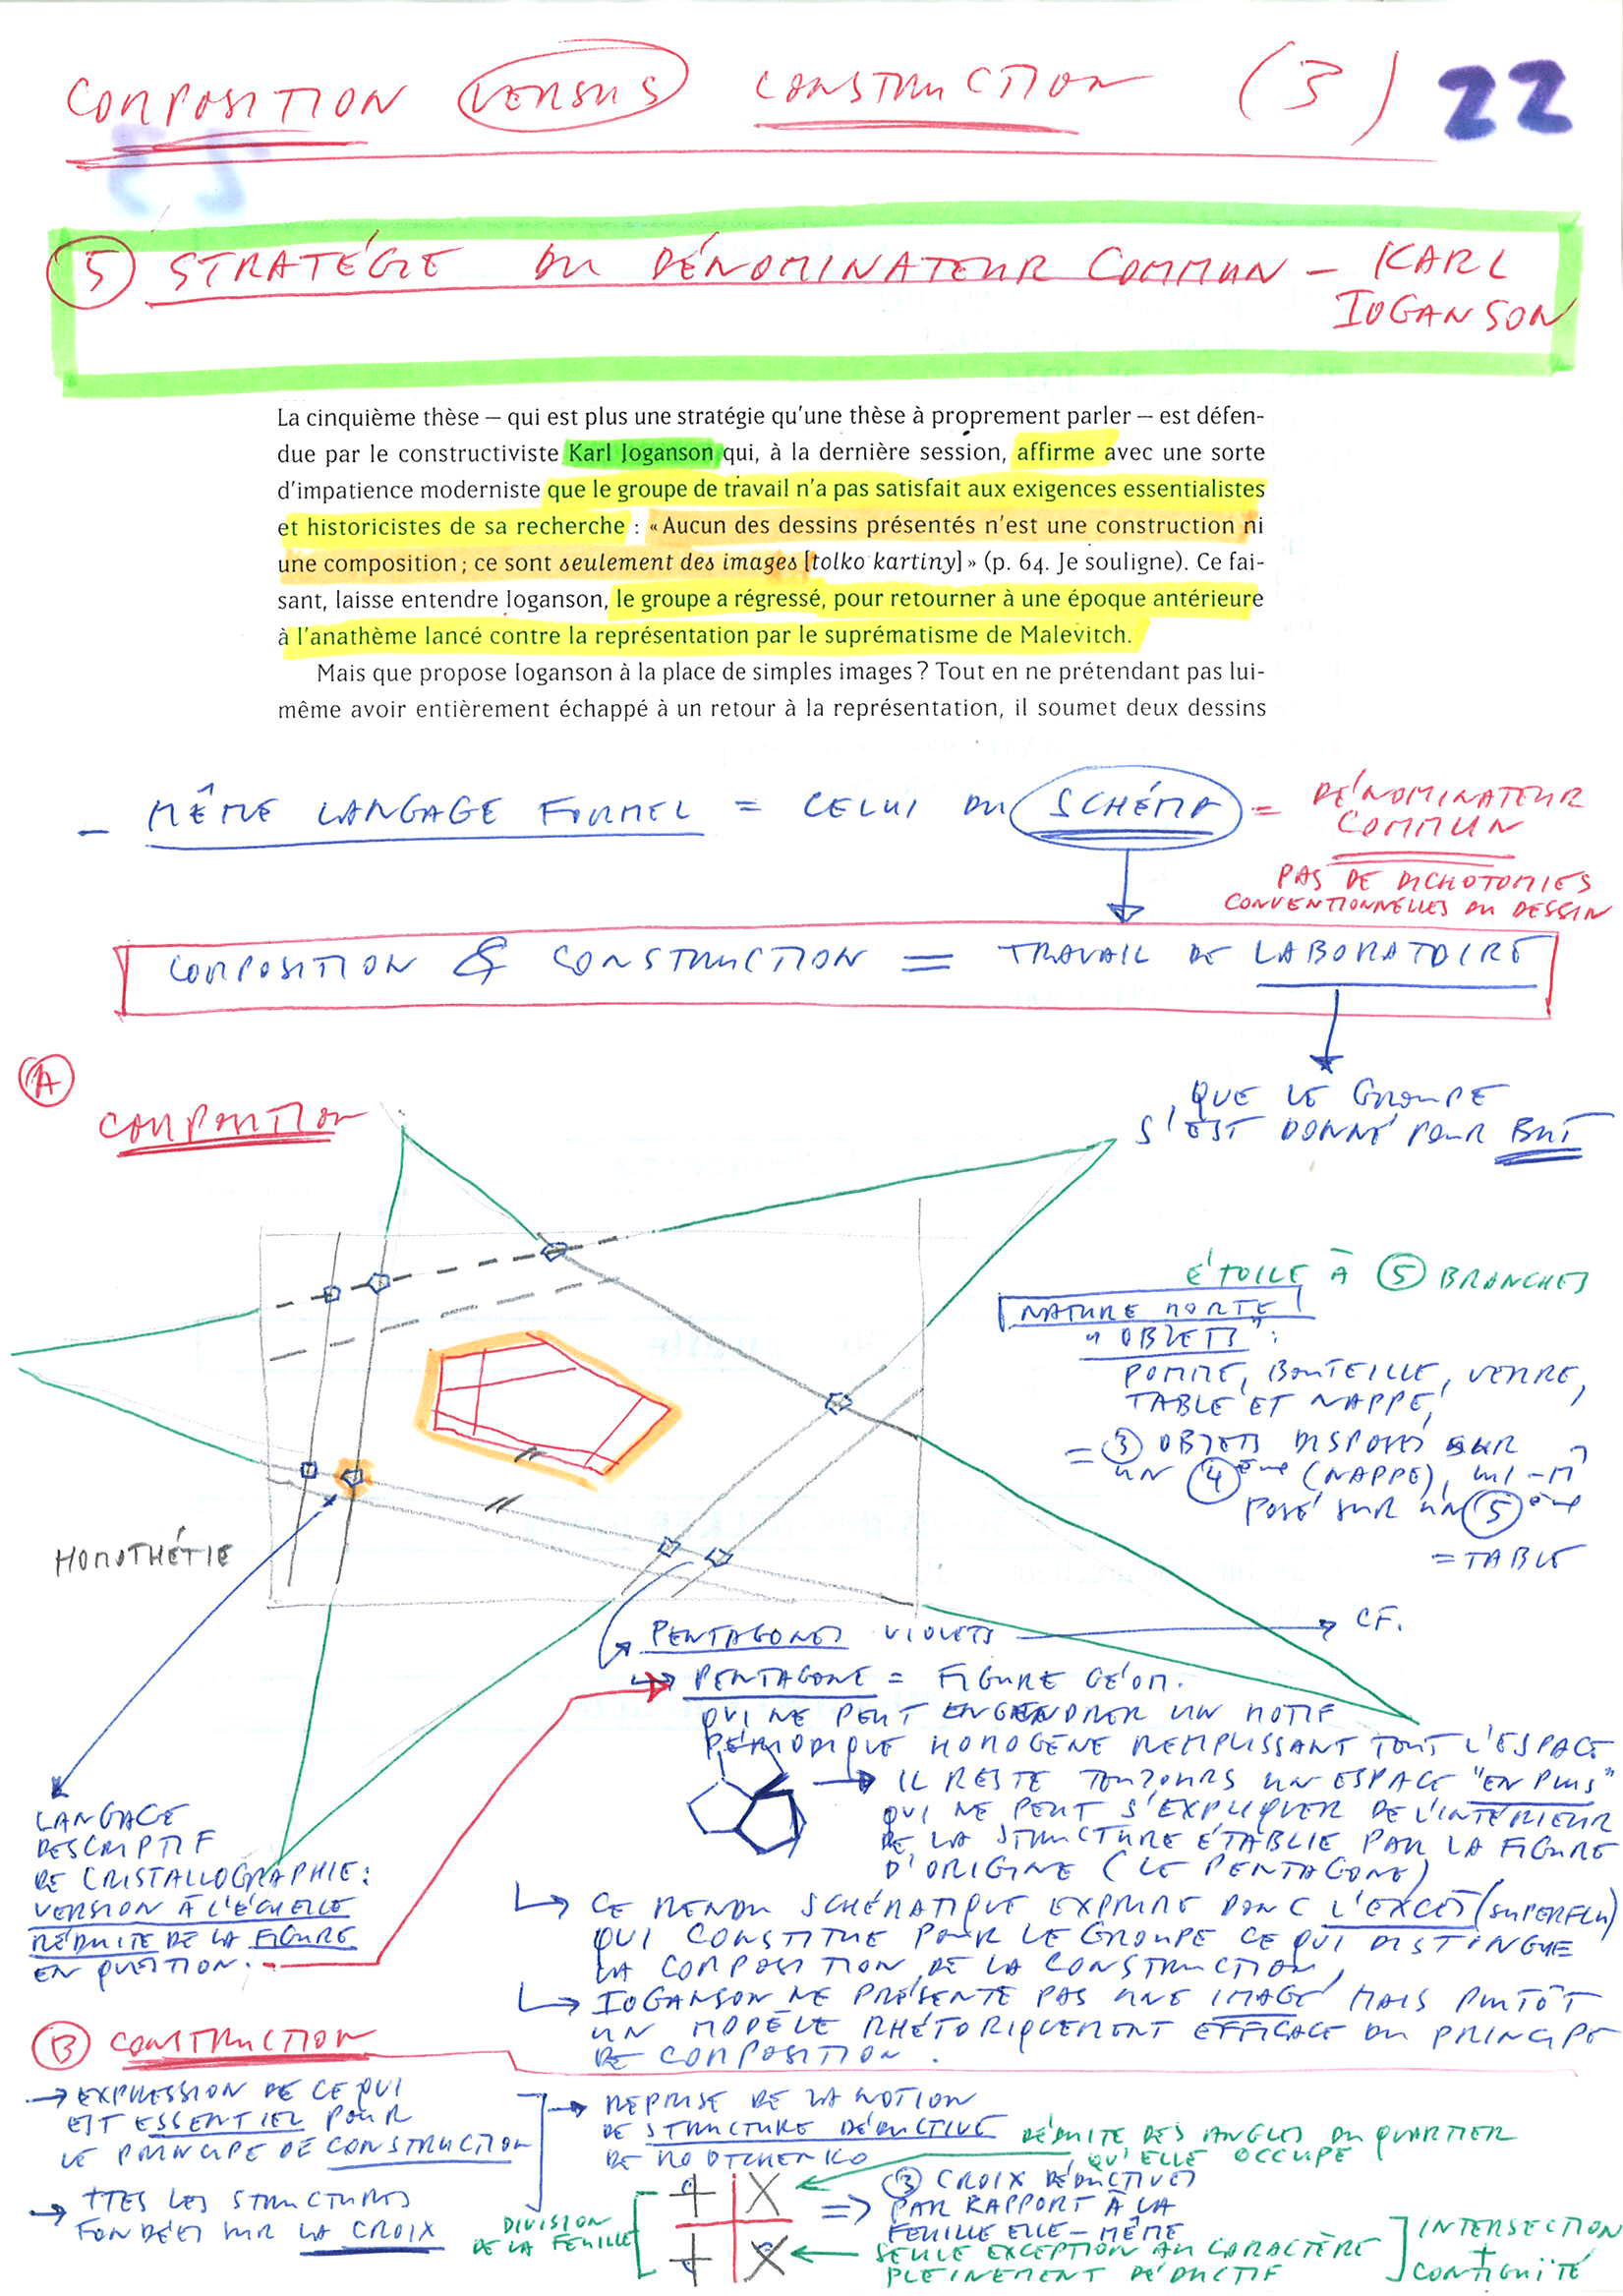 COMPOSITION VERSUS CONSTRUCTION (3) 22
5 STRATÉGIE DU DÉNOMINATEUR COMMUN – KARL
IOGANSON
La cinquième thèse – qui est plus une stratégie qu'une thèse à proprement parler – est défen-
due par le constructiviste Karl Ioganson qui, à la dernière session, affirme avec une sorte
d'impatience moderniste que le groupe de travail n'a pas satisfait aux exigences essentialistes
et historicistes de sa recherche : « Aucun des dessins présentés n'est une construction ni
une composition ; ce sont seulement des images [tolko kartiny] » (p. 64. Je souligne). Ce fai-
sant, laisse entendre Ioganson, le groupe a régressé, pour retourner à une époque antérieure
à l'anathème lancé contre la représentation par le suprématisme de Malevitch.
Mais que propose Ioganson à la place de simples images ? Tout en ne prétendant pas lui-
même avoir entièrement échappé à un retour à la représentation, il soumet deux dessins
– MÊME LANGAGE FORMEL = CELUI DU SCHÉMA = DÉNOMINATEUR
COMMUN
PAS DE DICHOTOMIES
CONVENTIONNELLES DU DESSIN
COMPOSITION & CONSTRUCTION = TRAVAIL DE LABORATOIRE
QUE LE GROUPE
S'EST DONNÉ POUR BUT
A
COMPOSITION
ÉTOILE À 5 BRANCHES
NATURE MORTE
"OBJETS" :
POMME, BOUTEILLE, VERRE,
TABLE ET NAPPE,
= 3 OBJETS DISPOSÉS SUR
UN 4ème (NAPPE), LUI-M
POSÉ SUR UN 5ème
= TABLE
HOMOTHÉTIE
PENTAGONES VIOLETS → CF.
PENTAGONE = FIGURE GÉOM.
QUI NE PEUT ENGENDRER UN MOTIF
PÉRIODIQUE HOMOGÈNE REMPLISSANT TOUT L'ESPACE
→ IL RESTE TOUJOURS UN ESPACE "EN PLUS"
QUI NE PEUT S'EXPLIQUER DE L'INTÉRIEUR
DE LA STRUCTURE ÉTABLIE PAR LA FIGURE
D'ORIGINE (LE PENTAGONE)
LANGAGE
DESCRIPTIF
DE CRISTALLOGRAPHIE :
VERSION À L'ÉCHELLE
RÉDUITE DE LA FIGURE
EN QUESTION.
→ CE RENDU SCHÉMATIQUE EXPRIME DONC L'EXCÈS (SUPERFLU)
QUI CONSTITUE POUR LE GROUPE CE QUI DISTINGUE
LA COMPOSITION DE LA CONSTRUCTION,
→ IOGANSON NE PRÉSENTE PAS UNE IMAGE MAIS PLUTÔT
UN MODÈLE RHÉTORIQUEMENT EFFICACE DU PRINCIPE
DE COMPOSITION.
B CONSTRUCTION
→ EXPRESSION DE CE QUI
EST ESSENTIEL POUR
LE PRINCIPE DE CONSTRUCTION
→ TTES LES STRUCTURES
FONDÉES SUR LA CROIX
→ REPRISE DE LA NOTION
DE STRUCTURE DÉDUCTIVE
DE RODTCHENKO
DÉDUITE DES ANGLES DU QUARTIER
QU'ELLE OCCUPE
DIVISION
DE LA FEUILLE
⇒ 3 CROIX DÉDUCTIVES
PAR RAPPORT À LA
FEUILLE ELLE-MÊME
SEULE EXCEPTION AU CARACTÈRE
PLEINEMENT DÉDUCTIF
INTERSECTION
+
CONTIGUÏTÉ